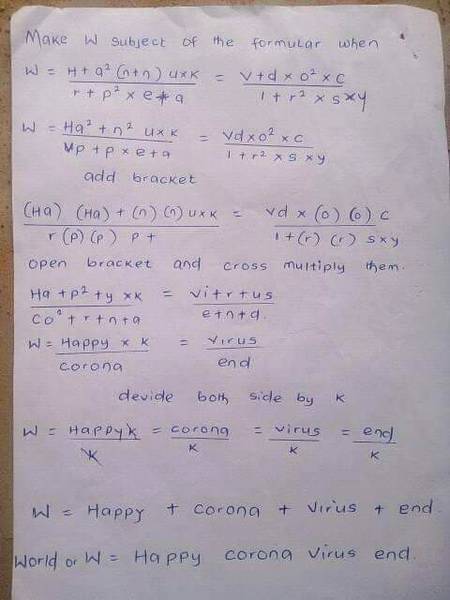 Make W subject of the formular when
W = H+a² (n+n) uxk / r+p² x e*a = V+d x o² x c / 1+r² x s x y
W = Ha²+n² uxk / Up+p x e+a = Vdxo² x c / 1+r² x s x y
add bracket
(Ha) (Ha) + (n) (n) uxk / r (p) (p) p+ = Vd x (o) (o) c / 1+(r) (r) sxy
open bracket and cross multiply them.
Ha+p²+y xk / Co²+r+n+a = Vi+r+us / e+n+d.
W = Happy x k / corona = virus / end
devide both side by k
W = Happyk / k = corona / k = virus / k = end / k
W = Happy + corona + virus + end.
World or W = Happy corona virus end.